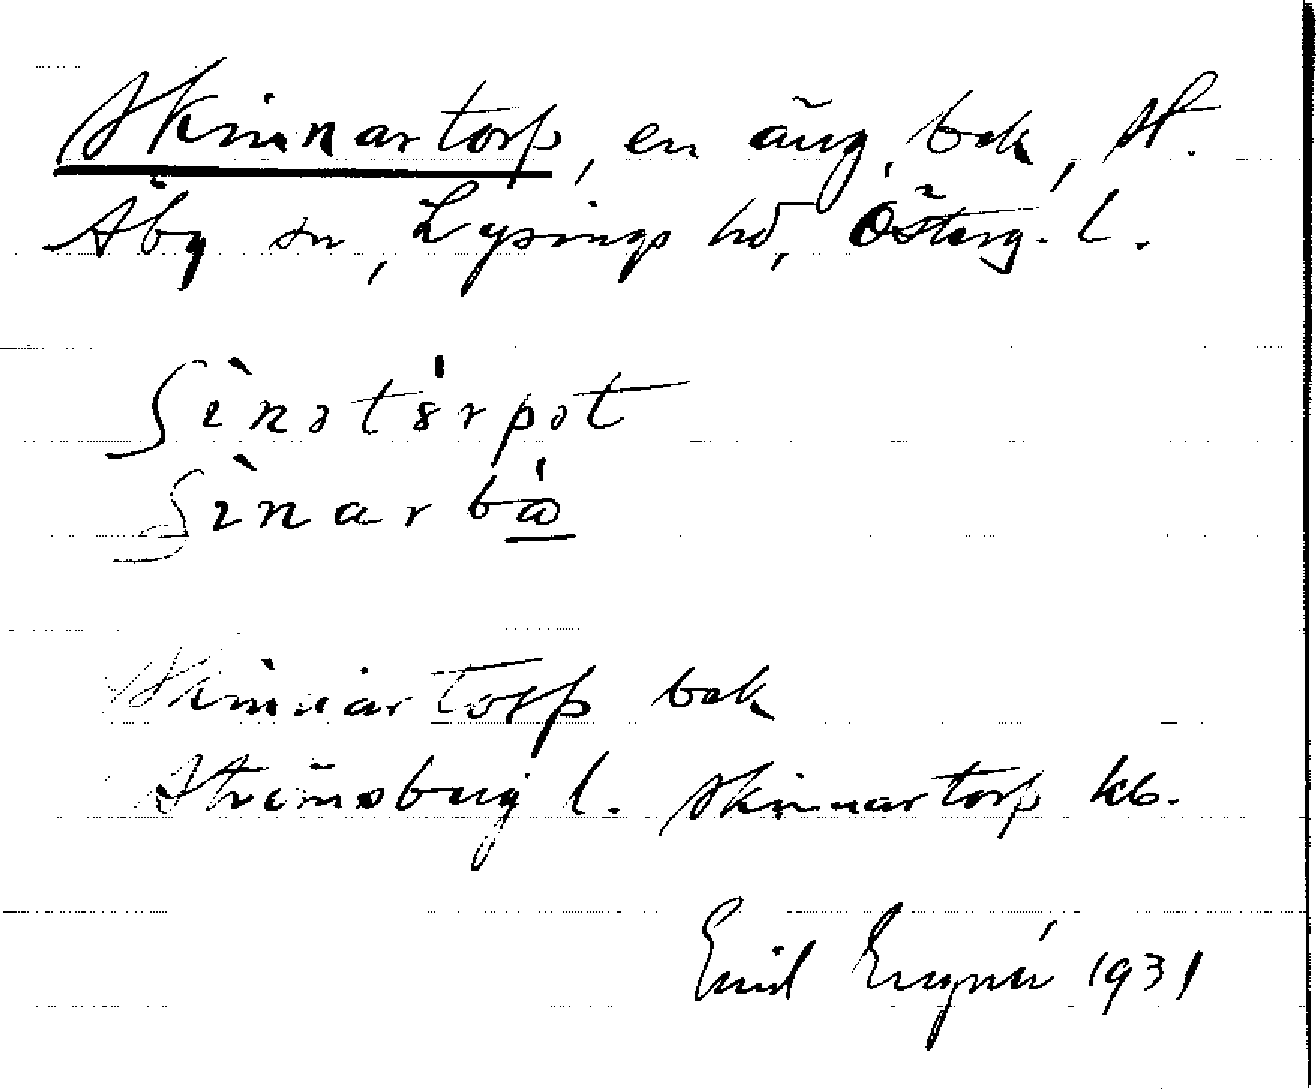 Skinnartorp, en äng, bek, St.
Åby sn, Lysings hd, Österg. l.
ʃìnətɵ́rpət
ʃìnarbó̱
Skinnartorp bek
Strömsberg l. Skinnartorp kb.
Emil 1931